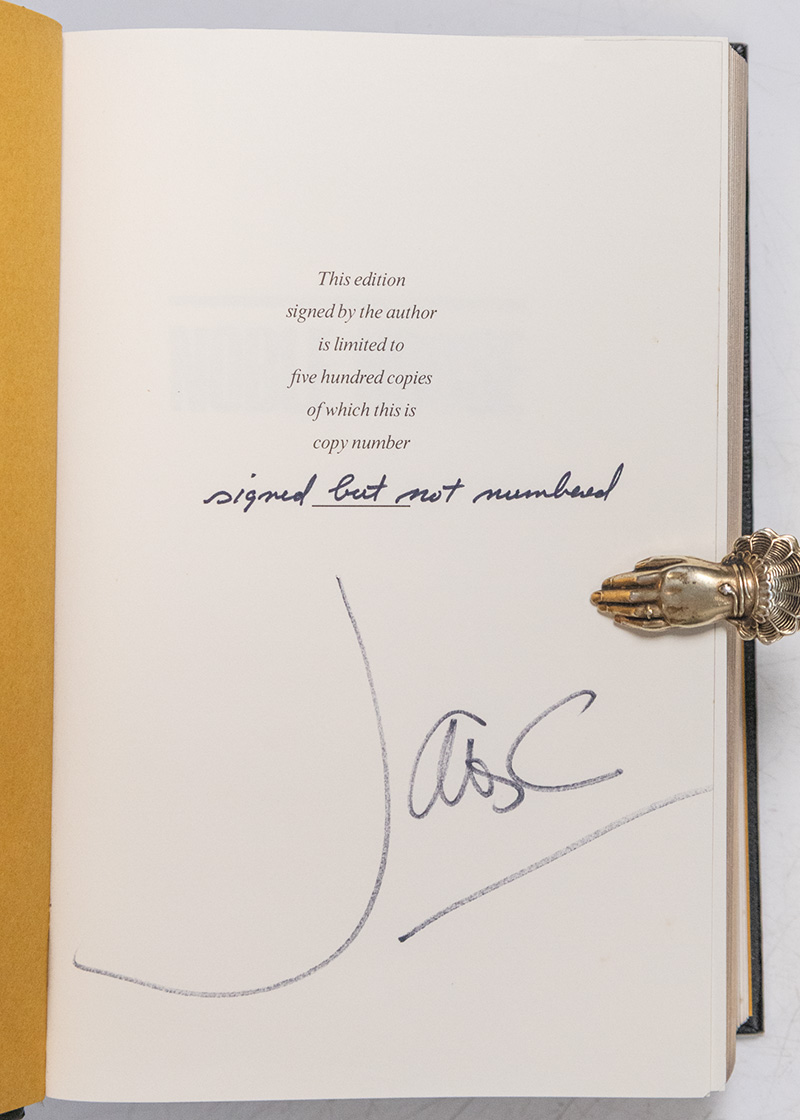 This edition
signed by the author
is limited to
five hundred copies
of which this is
copy number
signed but not numbered